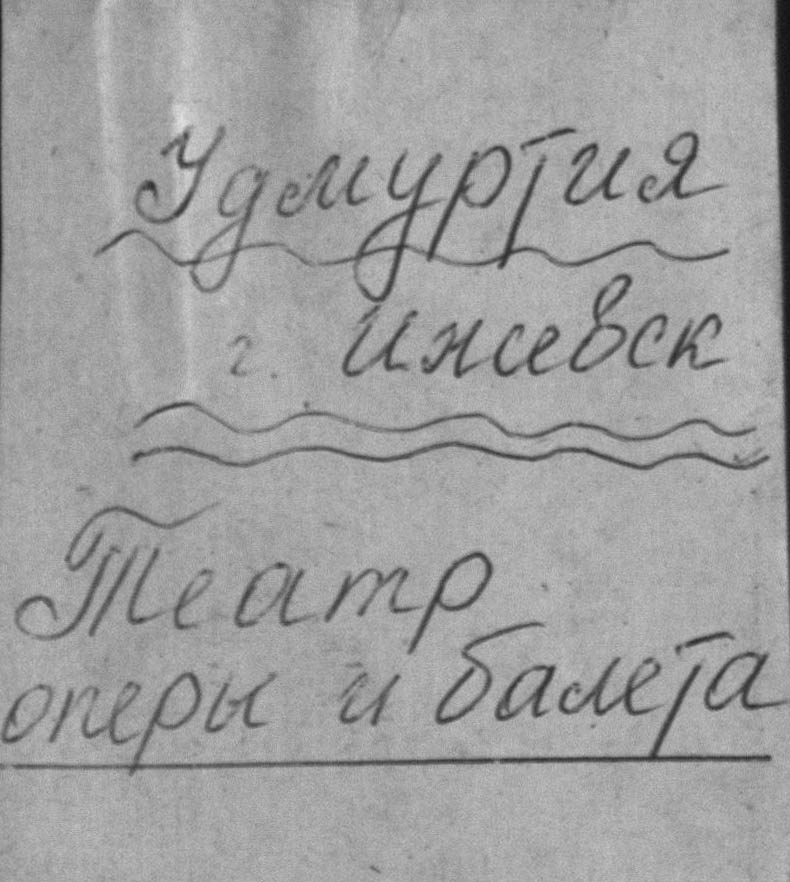 Удмуртия
г. Ижевск
Театр
оперы и балета